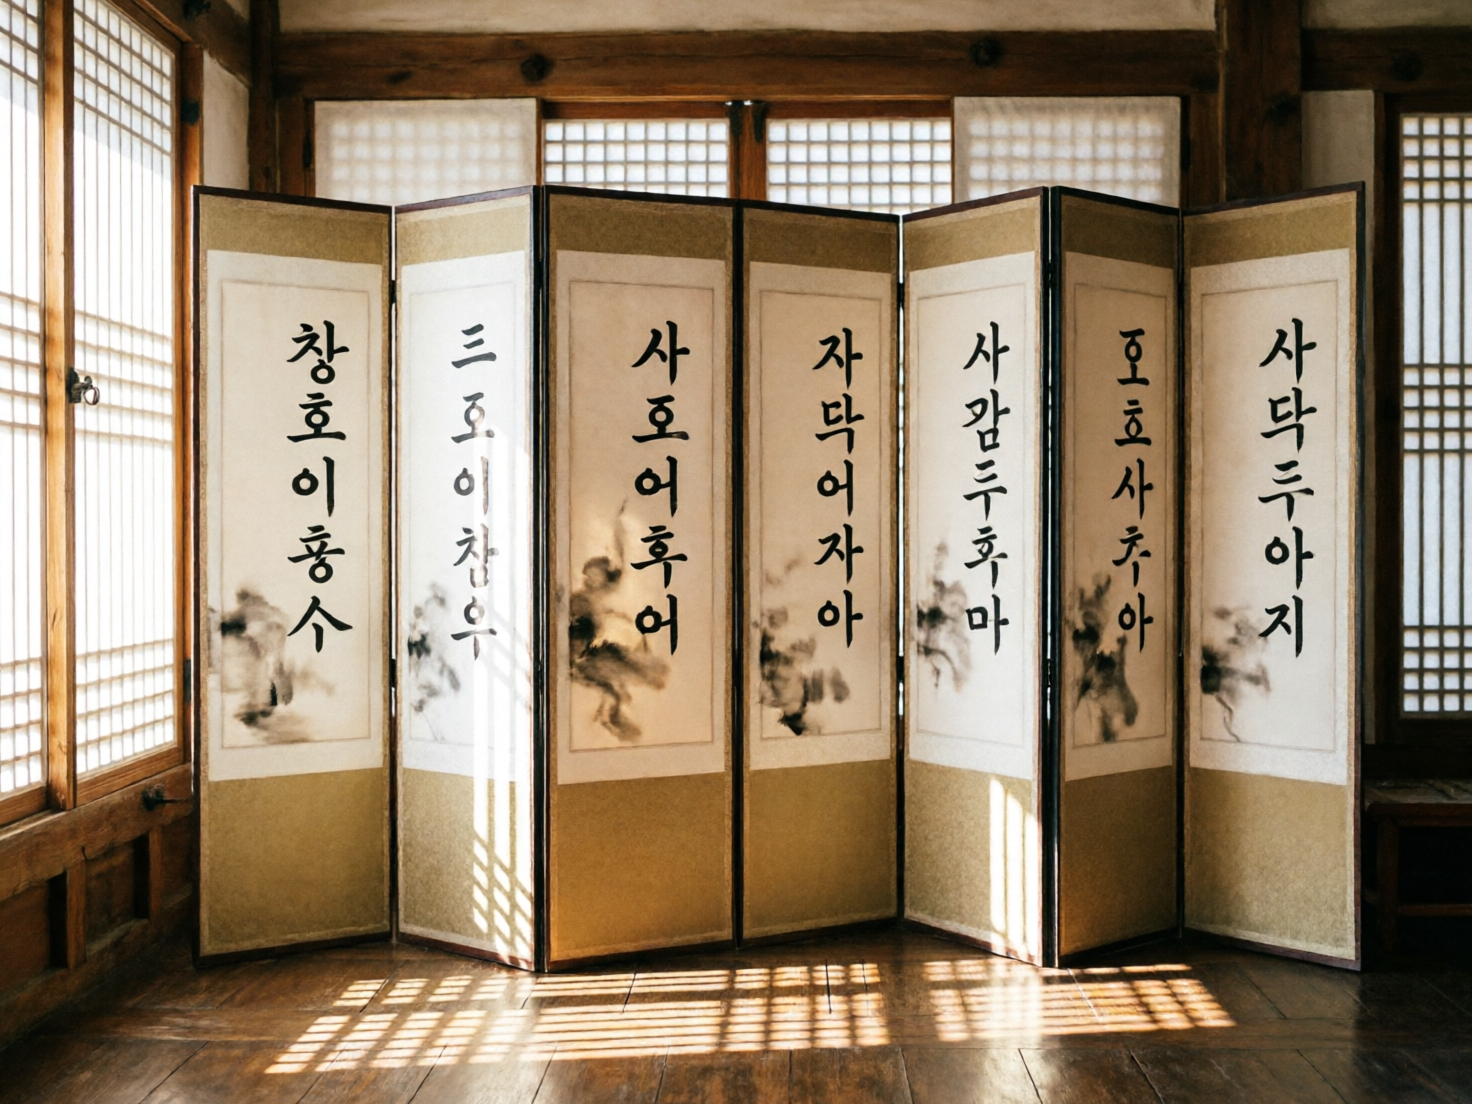 창호이흉소
三호이참우
사호어후어
자닥어자아
사감두후마
호호사추아
사닥두아지